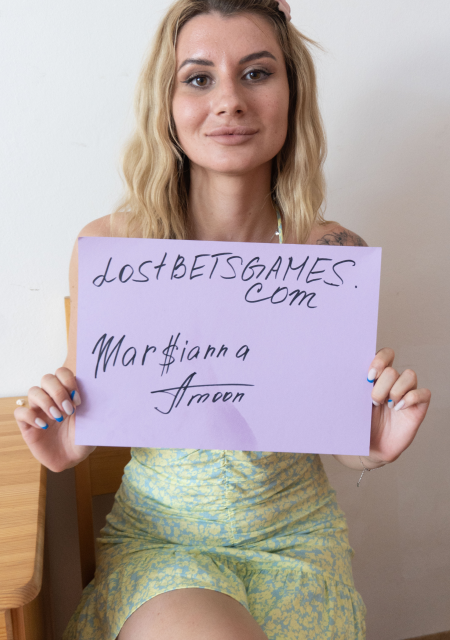 LostBETSGAMES.
com
Mar$ianna
Amoon